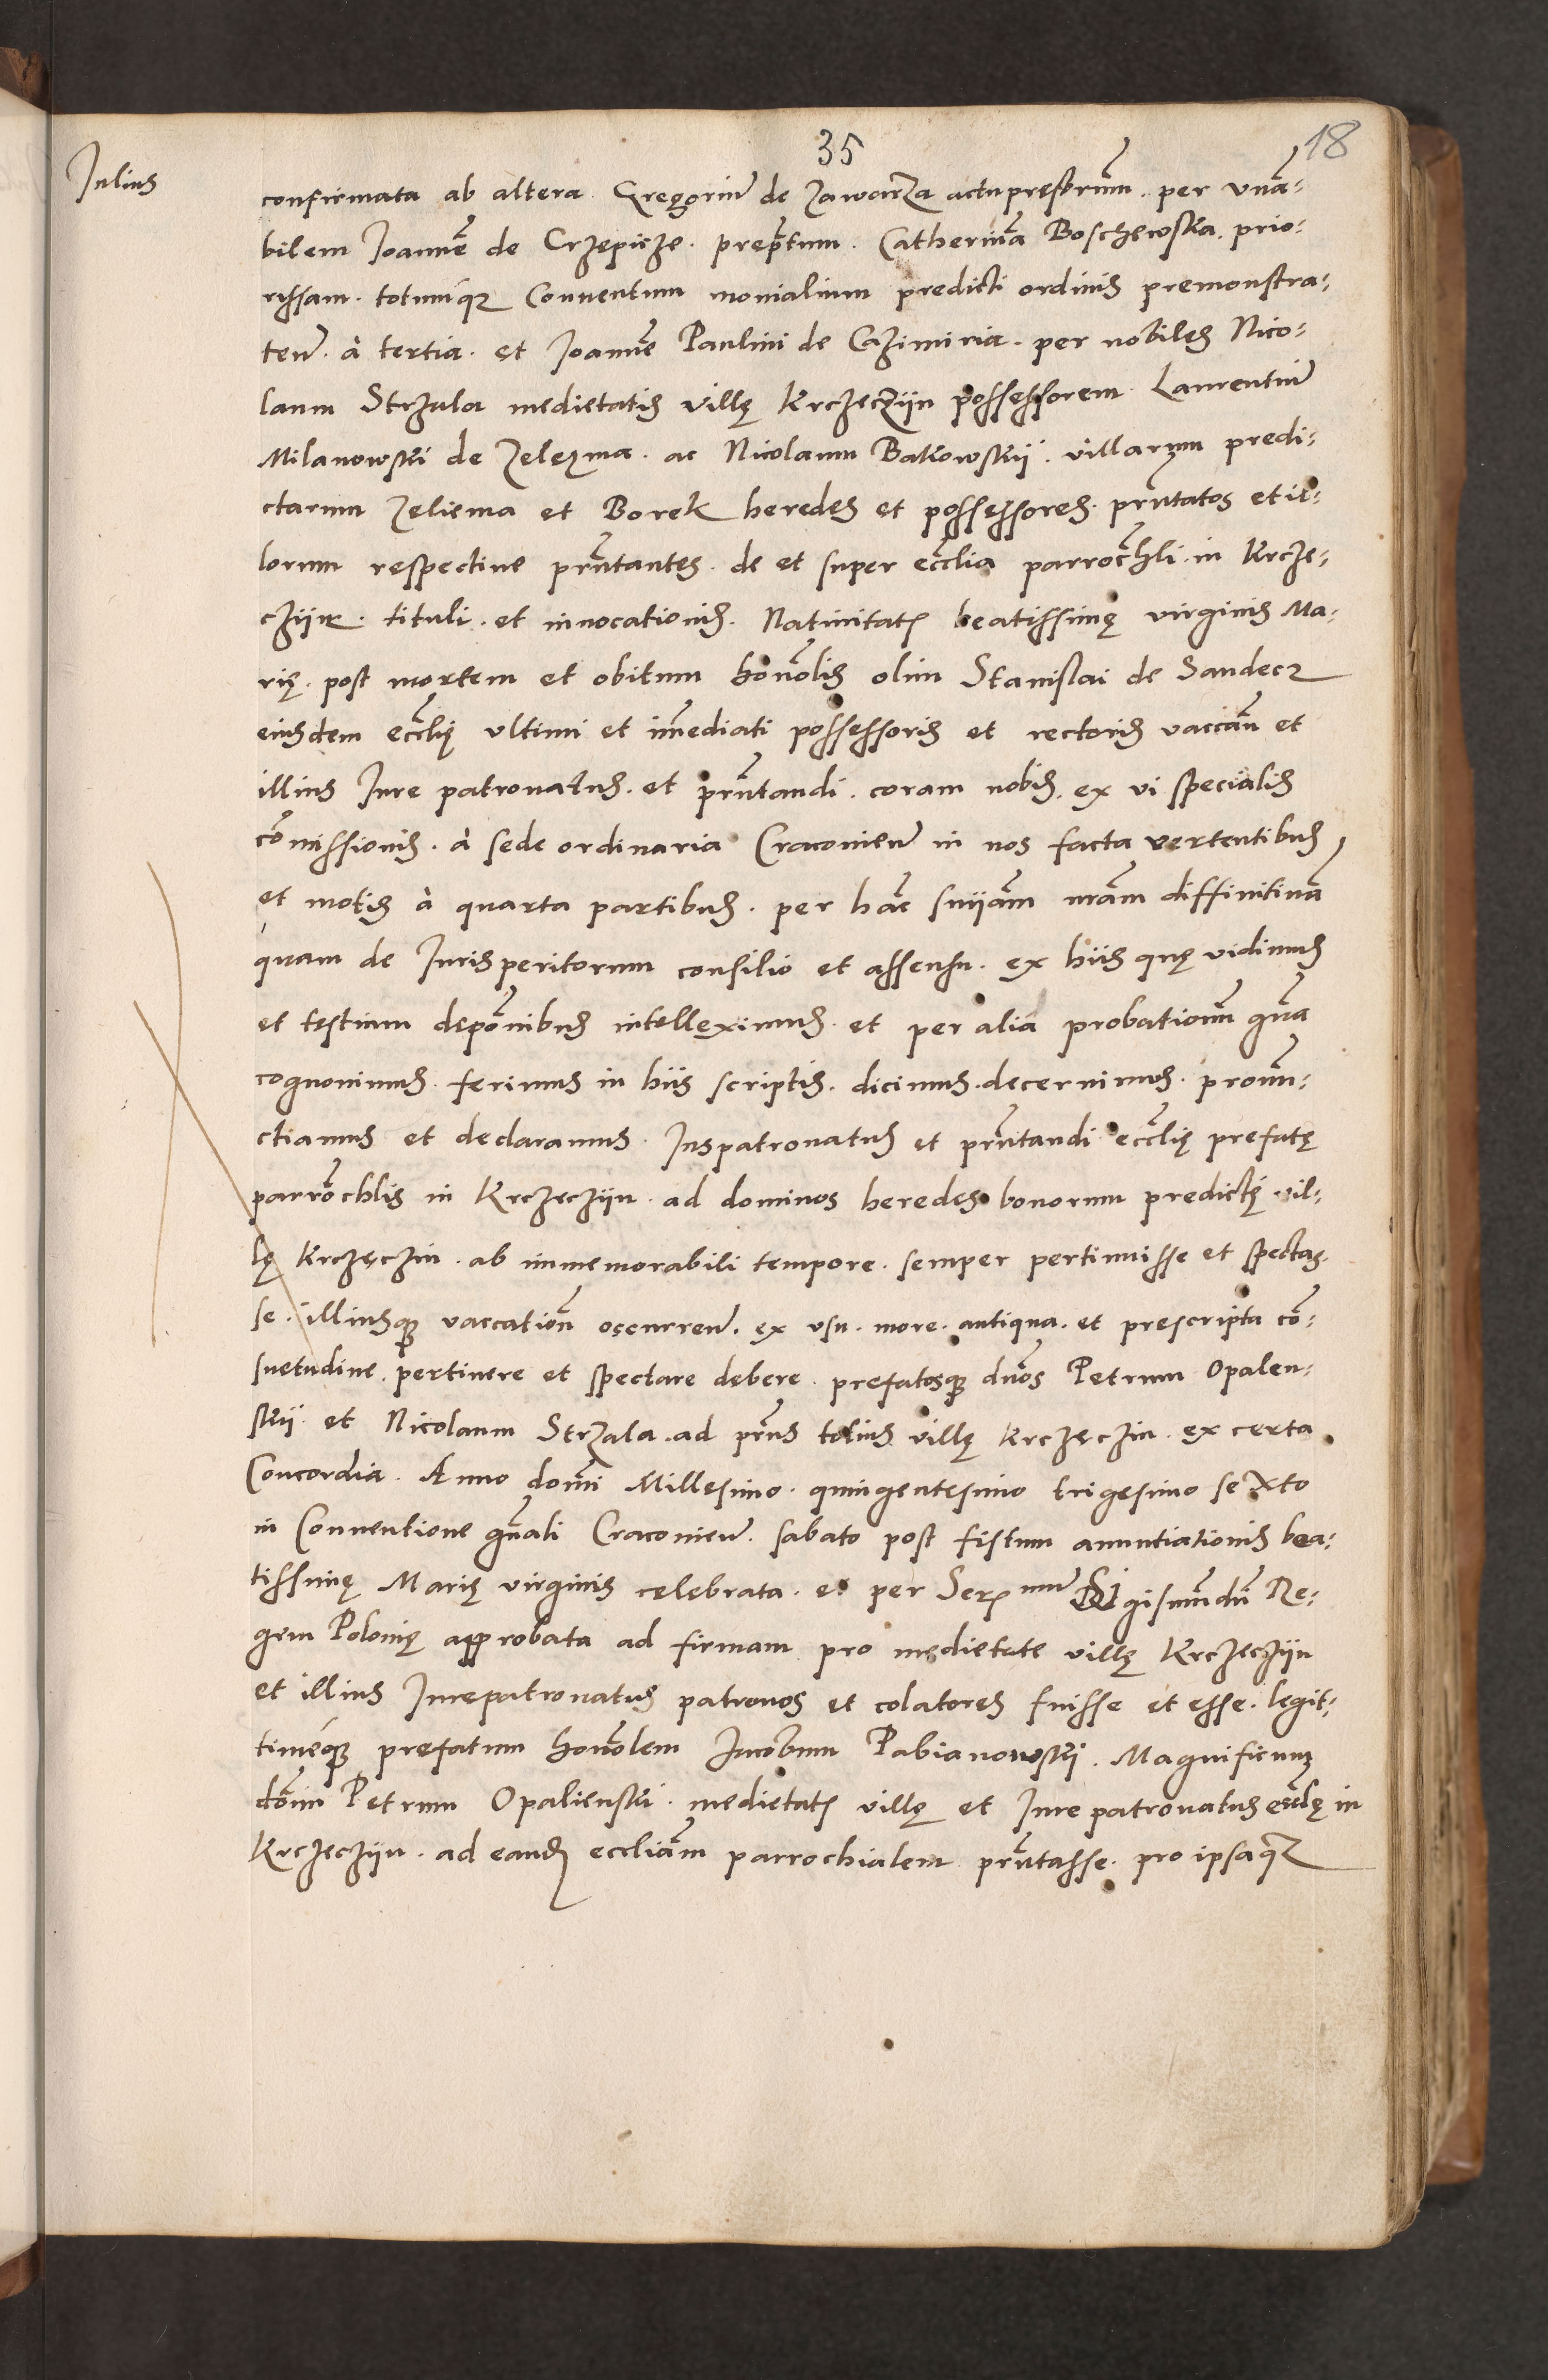 35
18
Julius
confirmata ab altera. Gregoriũ de Zawarza actupręsbrm̃. per vnã-
bilem Joannẽ de Crzepicze. prep̃tum. Catherinã Boschewska. prio-
rissam. totumq̃ Conuentum monialium predicti ordinis premonstra-
teñ. à tertia. et Joannẽ Paulini de Cazimiria. per nobiles Nico-
laum Strzala medietatis villę Krczeczyn possessorem. Laurentiũ
Milanowski de Zelezma. ac Nicolaum Bakowskij. villarum predi-
ctarum Zeliema et Borek heredes et possessores. prñtatos et il-
lorum respectiue prñtantes. de et super ecc̃lia parroc̃hli. in Krcze-
czyn. tituli. et inuocationis. Natiuitatis beatissimę virginis Ma-
rię. post mortem et obitum honõlis olim Stanislai de Sandecz
eiusdem ecc̃lię vltimi et im̃ediati possessoris et rectoris vaccañ et
illius Jure patronatus. et prñtandi. coram nobis. ex vi specialis
com̃issionis. à sede ordinaria Cracouieñ in nos facta vertentibus
et motis à quarta partibus. per hãc snĩjam nrãm diffinitiuã
quam de Jurisperitorum consilio et assensu. ex hijs quę vidimus
et testium depõnibus intelleximus. et per alia probationũ gñra
cognouimus. ferimus in hijs scriptis. dicimus. decernimus. pronun-
ctiamus et declaramus. Juspatronatus et prñtandi ecc̃lię prefatę
parroc̃hlis in Krczeczyn. ad dominos heredes bonorum predictę vil-
lę Krczęczin. ab immemorabili tempore. semper pertinuisse et spectas-
se. illiusq̃ vaccationẽ occurreñ. ex vsu. more. antiqua. et prescripta cõ-
suetudine. pertinere et spectare debere. prefatosq̃ dños Petrum Opalen-
skij et Nicolaum Strzala. ad prñs totius villę Krczęczin. ex certa
Concordia. Anno domĩ Millesimo. quingentesimo trigesimo sexto
in Conuentione gñali Cracouieñ. sabato post fistum anuntiationis bea-
tissimę Marię virginis celebrata. et per Ser.mũ Sigismundũ Re-
gem Polonię approbata ad firmam pro medietate villę Krczeczyn
et illius Jurepatronatus patronos et colatores fuisse et esse. legit-
timeq̃ prefatum honõlem Jacobum Pabianowski. Magnificum
dom̃ Petrum Opalienski. medietatis villę et Jure patronatus ecc̃lę in
Krczeczyn. ad eandẽ eccliãm parrochialem prñtasse. pro ipsaq̃